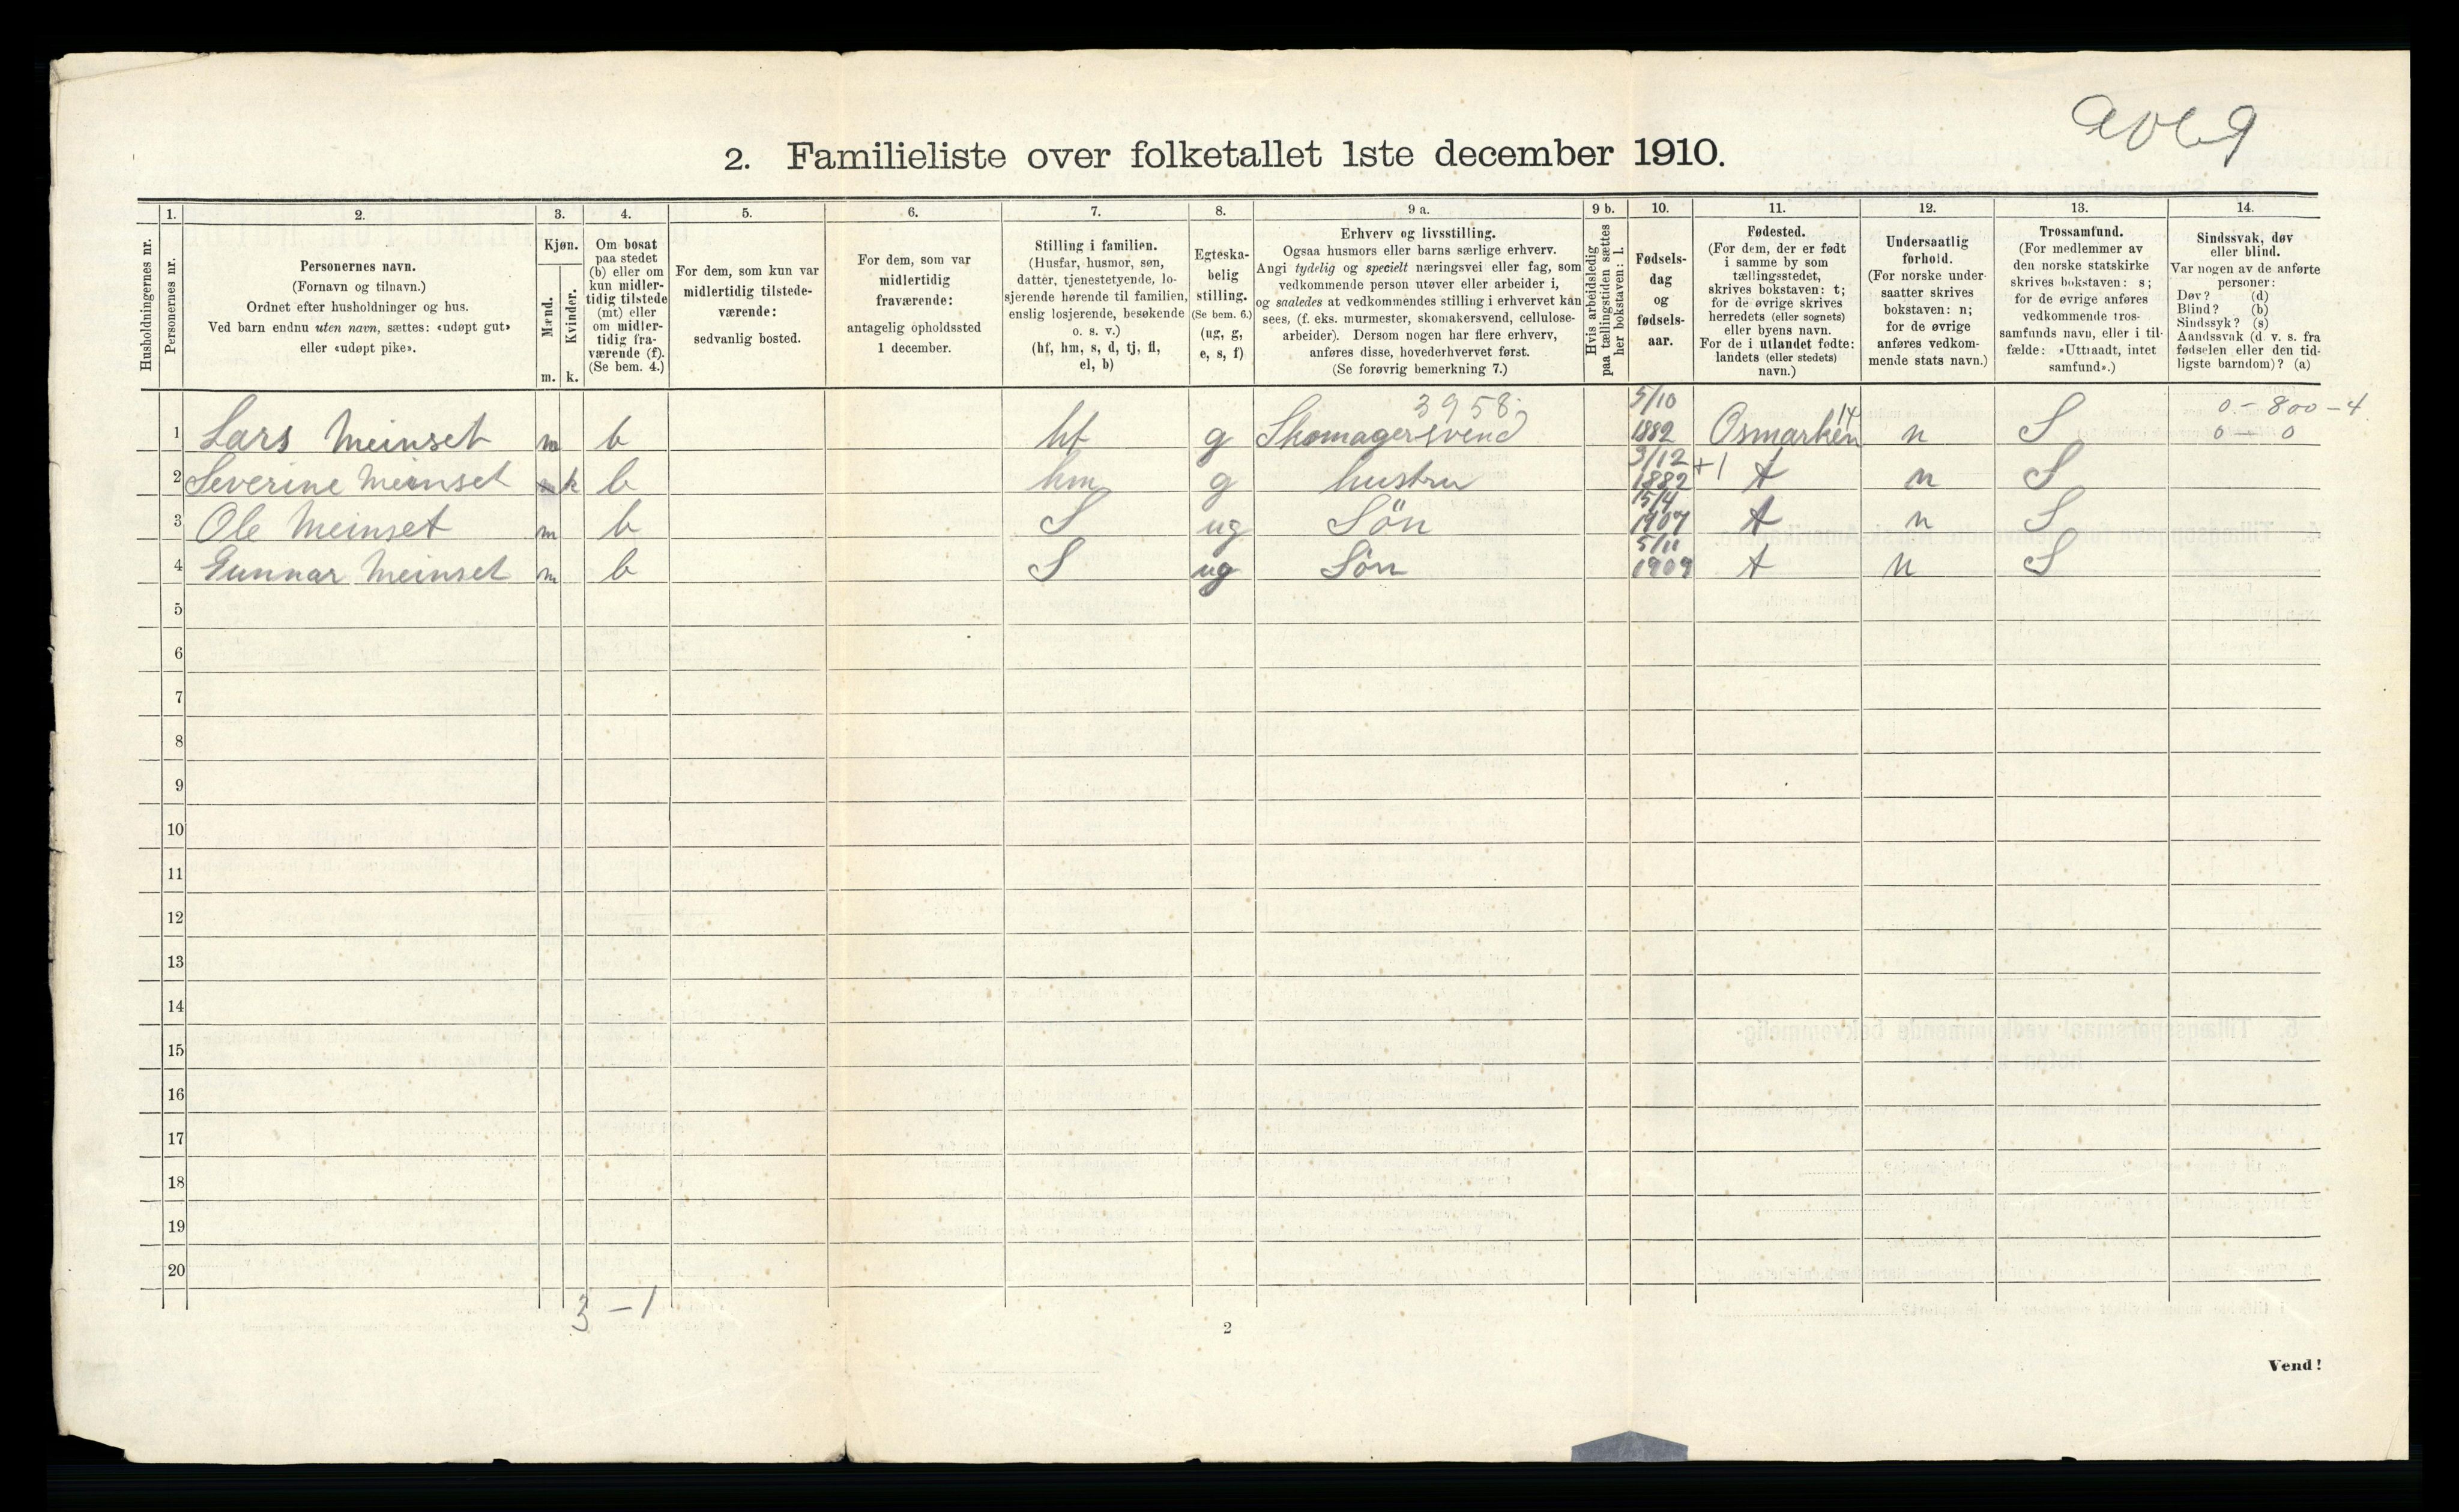 2. Familieliste over folketallet 1ste december 1910.
Husholdningernes nr.
1.
Personernes nr.
2.
Personernes navn.
(Fornavn og tilnavn.)
Ordnet efter husholdninger og hus.
Ved barn endnu uten navn, sættes: «udøpt gut»
eller «udøpt pike».
3.
Kjøn.
Mænd.
Kvinder.
m. k.
4.
Om bosat
paa stedet
(b) eller om
kun midler-
tidig tilstede
(mt) eller
om midler-
tidig fra-
værende (f).
(Se bem. 4.)
5.
For dem, som kun var
midlertidig tilstede-
værende:
sedvanlig bosted.
6.
For dem, som var
midlertidig
fraværende:
antagelig opholdssted
1 december.
7.
Stilling i familien.
(Husfar, husmor, søn,
datter, tjenestetyende, lo-
sjerende hørende til familien,
enslig losjerende, besøkende
o. s. v.)
(hf, hm, s, d, tj, fl,
el, b)
8.
Egteska-
belig
stilling.
(Se bem. 6.)
(ug, g,
e, s, f)
9 a.
Erhverv og livsstilling.
Ogsaa husmors eller barns særlige erhverv.
Angi tydelig og specielt næringsvei eller fag, som
vedkommende person utøver eller arbeider i,
og saaledes at vedkommendes stilling i erhvervet kan
sees, (f. eks. murmester, skomakersvend, cellulose-
arbeider). Dersom nogen har flere erhverv,
anføres disse, hovederhvervet først.
(Se forøvrig bemerkning 7.)
9 b.
Hvis arbeidsledig
paa tællingstiden sættes
her bokstaven: l.
10.
Fødsels-
dag
og
fødsels-
aar.
11.
Fødested.
(For dem, der er født
i samme by som
tællingsstedet,
skrives bokstaven: t;
for de øvrige skrives
herredets (eller sognets)
eller byens navn.
For de i utlandet fødte:
landets (eller stedets)
navn.)
12.
Undersaatlig
forhold.
(For norske under-
saatter skrives
bokstaven: n;
for de øvrige
anføres vedkom-
mende stats navn.)
13.
Trossamfund.
(For medlemmer av
den norske statskirke
skrives bokstaven: s;
for de øvrige anføres
vedkommende tros-
samfunds navn, eller i til-
fælde: «Uttraadt, intet
samfund».)
14.
Sindssvak, døv
eller blind.
Var nogen av de anførte
personer:
Døv? (d)
Blind? (b)
Sindssyk? (s)
Aandssvak (d. v. s. fra
fødselen eller den tid-
ligste barndom)? (a)
3958 5/10 14 0 - 800 - 4
1 Lars Meinset m b hf g Skomagersvend 1882 Osmarken n S 0 — 0
2 Severine Meinset k b hm g hustru 3/12 1882 +1 t n S
3 Ole Meinset m b S ug Sön 15/4 1907 t n S
4 Gunnar Meinset m b S ug Sön 5/11 1909 t n S
5
6
7
8
9
10
11
12
13
14
15
16
17
18
19
20
3 - 1
2
Vend!